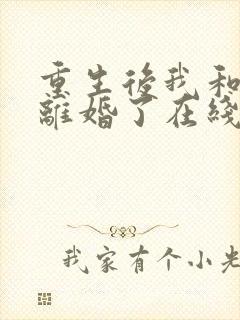 重生後我和
離婚了在綫
我家有个小先